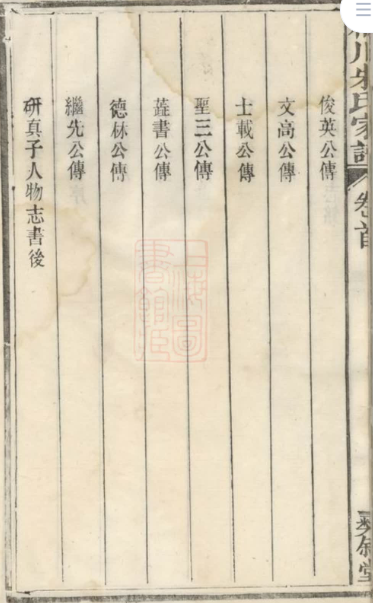 俊英公傳
文高公傳
士載公傳
聖三公傳
蕋書公傳
德林公傳
繼先公傳
研真子人物志書後
川朱氏家譜
卷首
敘堂